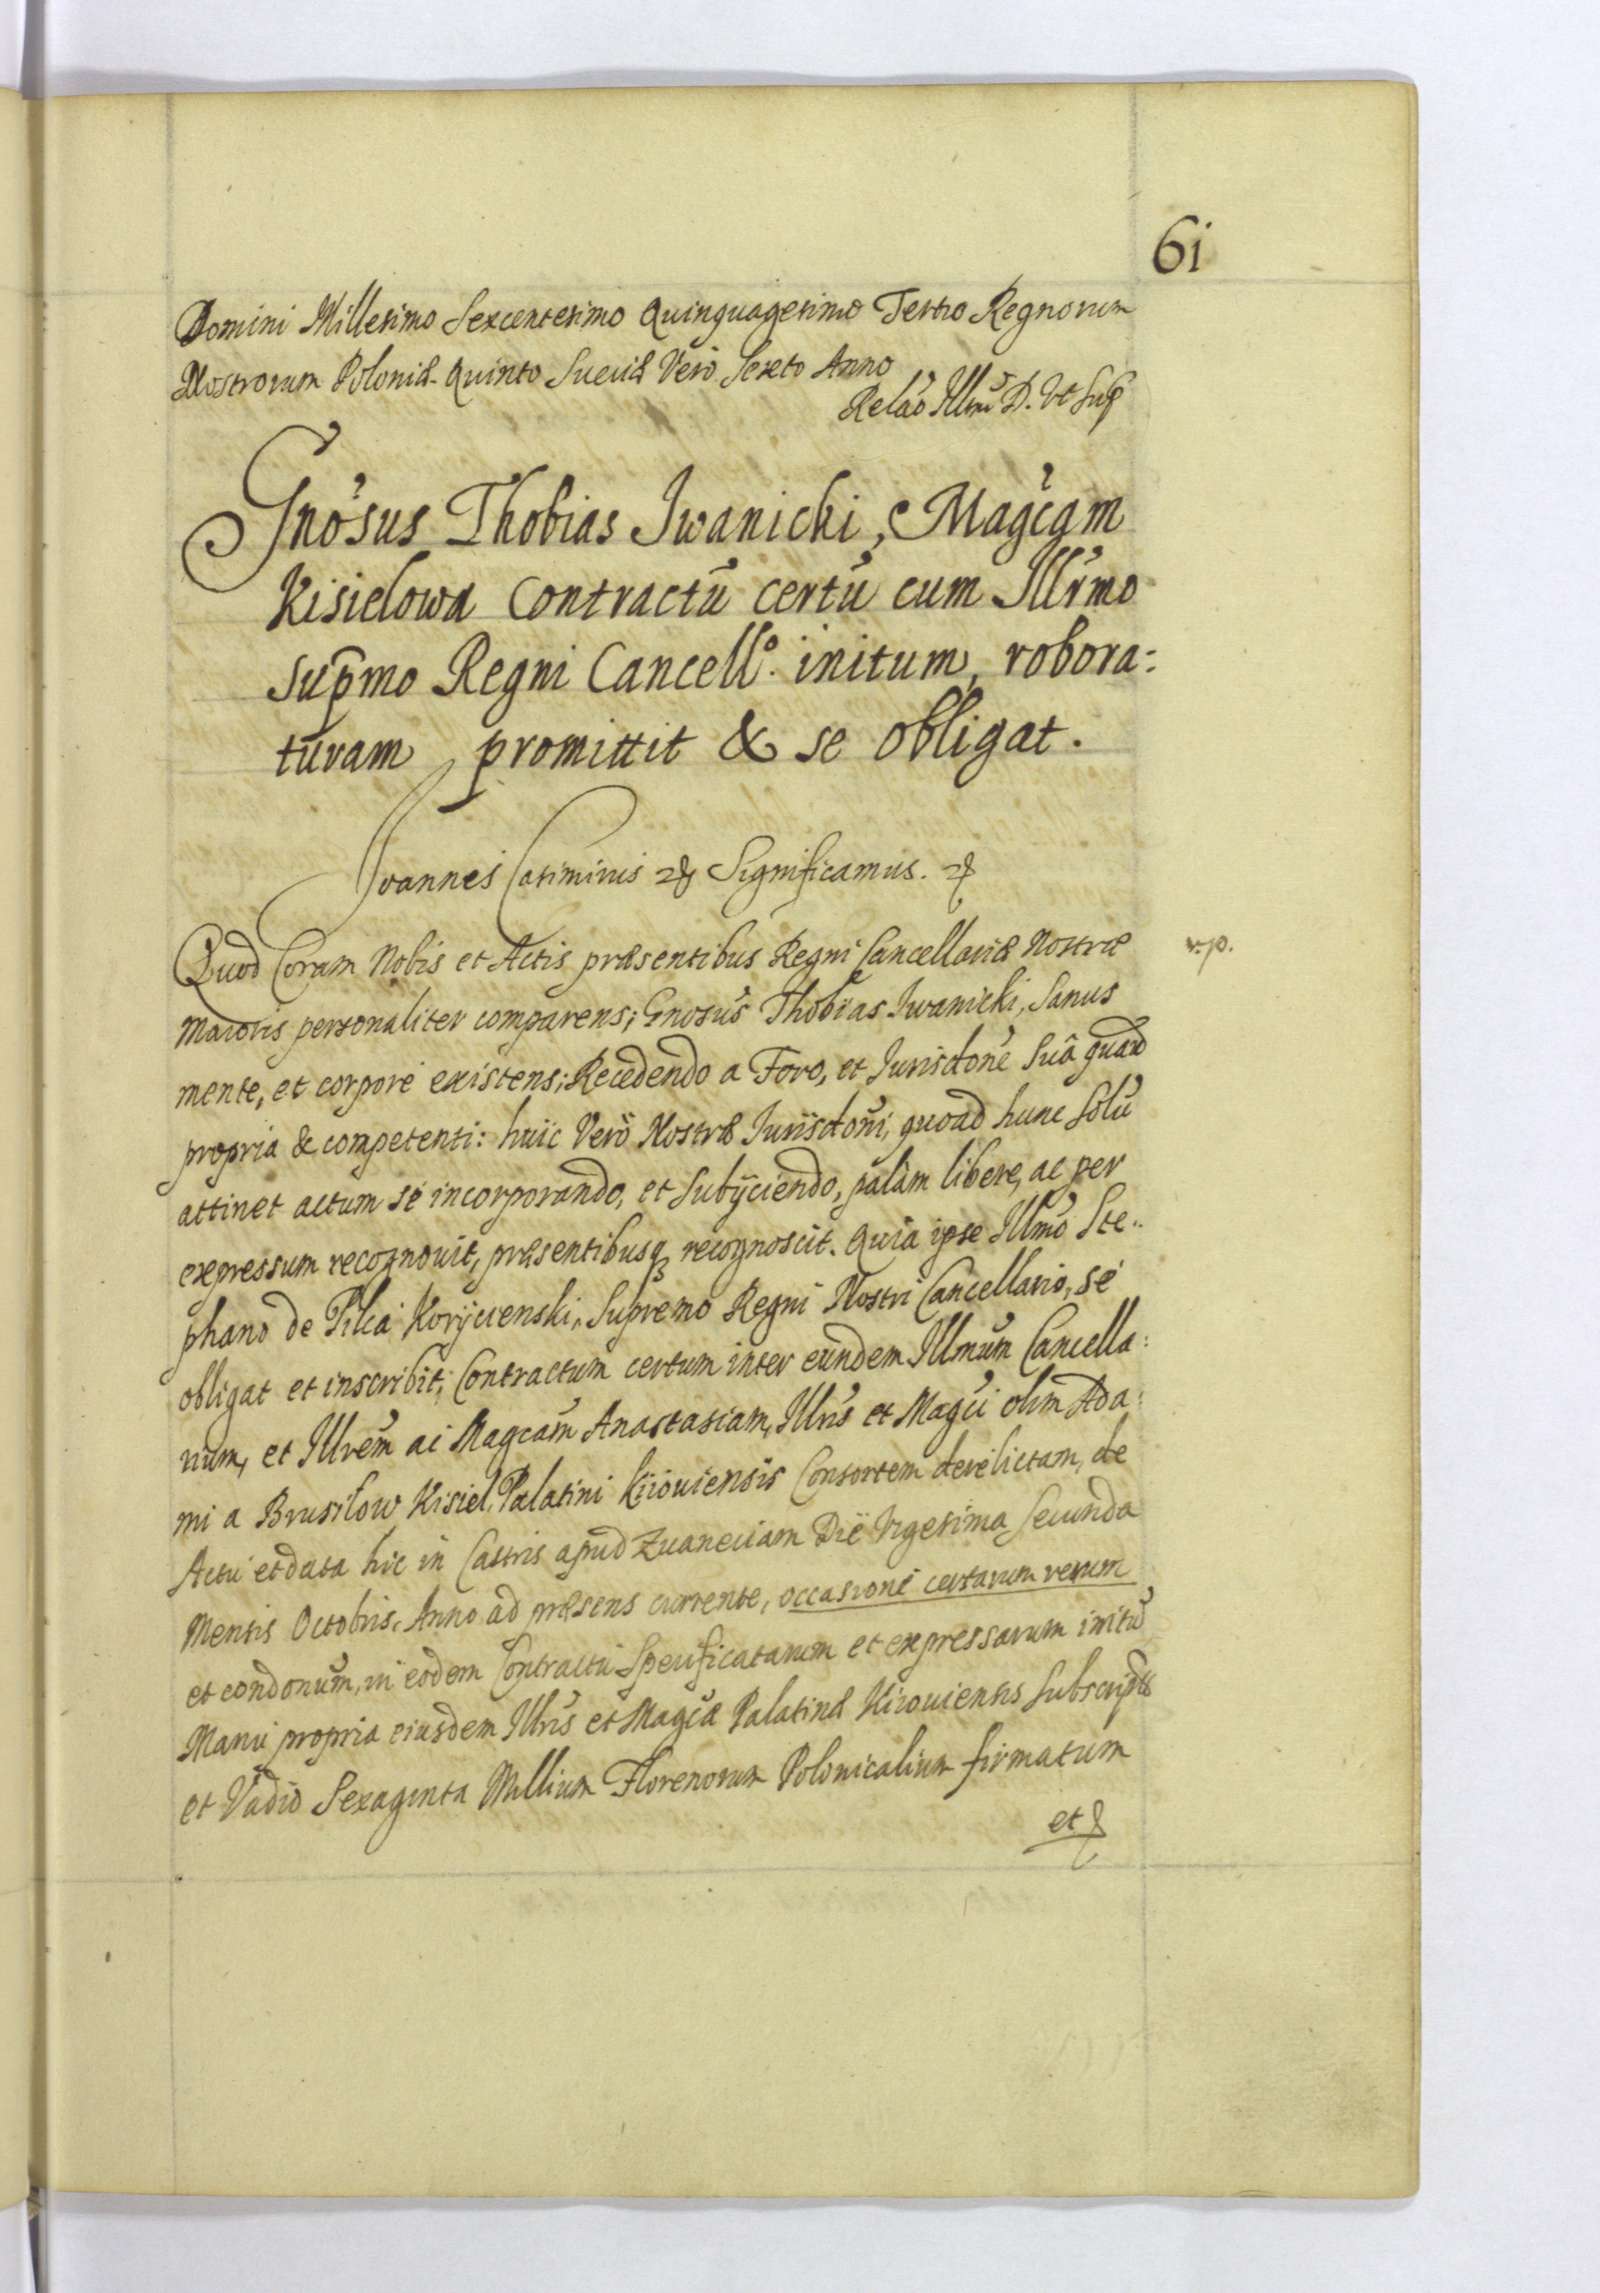 61
Domini Millesimo Sexcentesimo Quinquagesimo Tertio Regnorum
Nostrorum Poloniæ Quinto Sueciæ Verò Sexto Anno
Relao Illmi D. Vt Sup
Gnosus Thobias Iwanicki, Magcam
Kisielowa Contractũ certũ cum Illrmo
supmo Regni Cancello. initum, robora:
turam promittit & se obligat.
Ioannes Casimirus & Significamus. &
Quod Coram Nobis et Actis præsentibus Regni Cancellariæ Nostræ
r.p.
Maioris personaliter comparens; Gnosus Thobias Iwanicki, Sanus
mente, et corpore existens; Recedendo a Foro, et Iurisdone Suâ quavis
propria & competenti: huic Verò Nostræ Iurisdoni, quoad hunc Solũ
attinet actum se incorporando, et Subijciendo, palàm libere, ac per
expressum recognouit, præsentibusq recognoscit. Quia ipse Illmo Ste..
phano de Pilca Korijcienski, Supremo Regni Nostri Cancellario, se
obligat et inscribit, Contractum certum inter eundem Illmum Cancella:
rium, et Illrem ac Magcam Anastasiam, Illris et Magci olim Ada:
mi a Brusiłow Kisiel, Palatini Kiiouiensis Consortem derelictam, de
Actu et data hic in Castris apud Zuaneciam Die Vigesima Secunda
Mensis Octobris, Anno ad præsens currente, occasione certarum rerum
et condonum, in eodem Contractu Specificatarum et expressarum initũ
Manu propria eiusdem Illris et Magcæ Palatinæ Kiiouiensis Subscriptũ
et Vadio Sexaginta Millium Florenorum Polonicalium firmatum
et